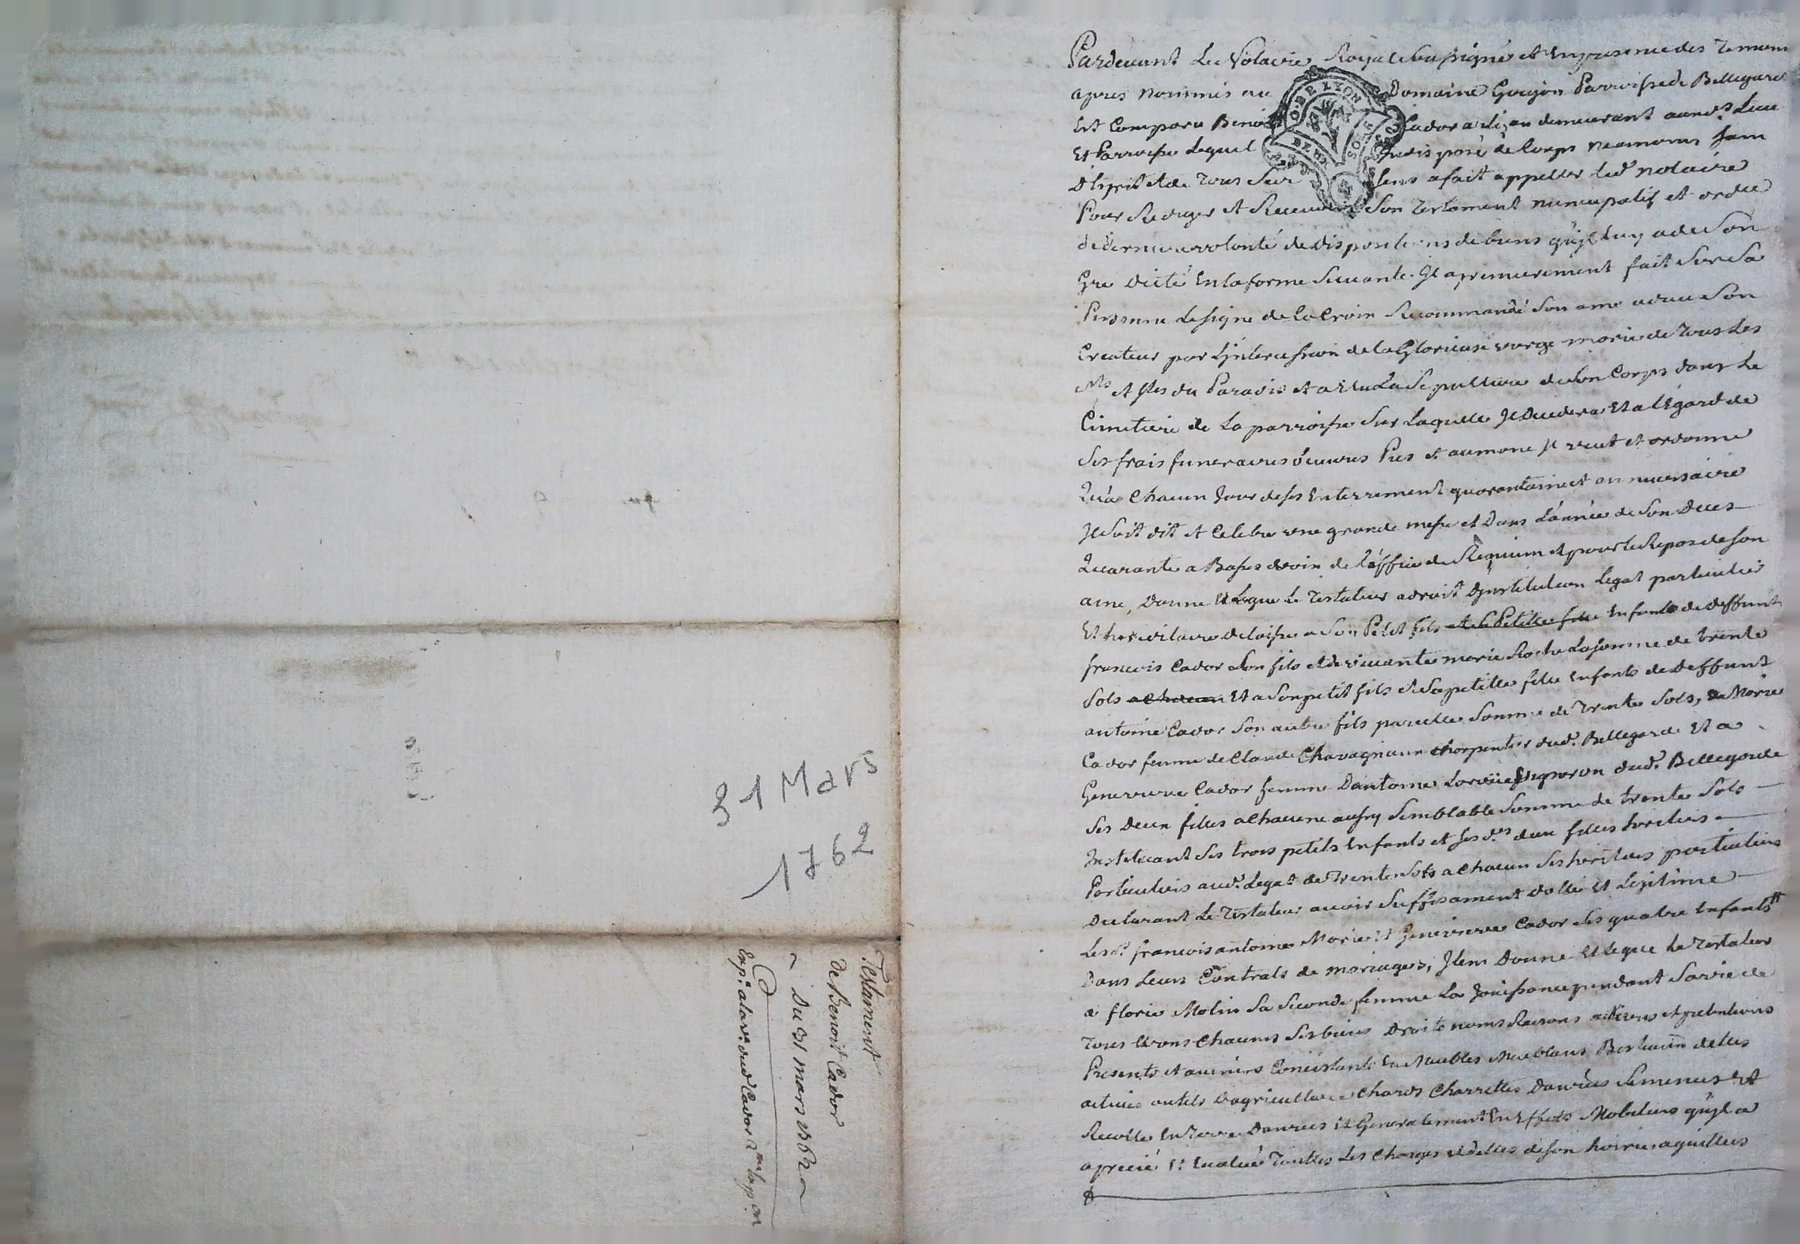 31 Mars
1762
Testament
de Benoit Cador
Du 31 mars 1762
Exp.on a la r.te dud Cador
G.DE LYON
DEUX SOLS
Pardevant Le Notaire Royal soussigné et En presence des Temoins
apres Nommés au Domaine Goujon Parroisse de Bellegarde
Est Comparu Benoit Cador demeurant aud.t Lieu
Et Parroisse Lequel Indisposé de Corps neamoins Sain
D'Esprit et de Tous Ses Sens a fait appeller led.t notaire
Pour Rediger et Recevoir Son Testament nuncupatif et ordre
de derniere volonté de dispositions de biens qu'jl luy a de Son
Gré dicté En la forme Suivante. Jl a premierement fait Sur Sa
Personne Le signe de la Croix Recommandé Son ame a dieu Son
Createur par L'jntercession de la Glorieuse vierge marie de Tous Les
S.ts et S.tes du Paradis et a Elu La Sepulture de Son Corps dans Le
Cimetiere de La parroisse Sur Laquelle Jl Decedera Et a l'Egard de
Ses frais funeraires oeuvres Pies et aumone jl veut et ordonne
Qu'a Chacun Jour de Ses Enterrement quarantaine et anniversaire
Jl Soit dit et Celebré une grande messe et Dans L'année de Son Deces
Quarante a Basses voix de L'office de Requium et pour le Repos de Son
ame, Donne Et Legue le Testateur a droit D'jnstitution Legat particulier
Et hereditaire delaisse a Son Petit fils et Sa Petite fille Enfants de deffunt
francois Cador Son fils et de vivante marie Roche La Somme de trente
Sols a Chacun Et a Son petit fils et Sa petitte fille Enfants de Deffunt
antoine Cador Son autre fils pareille Somme de Trente Sols, a Marie
Cador femme de Claude Chavagnieux Charpentier dud.t Bellegarde Et a
Genevieve Cador femme D'antoine vigneron dud.t Bellegarde
Ses Deux filles a Chacune aussy Semblable Somme de trente Sols
Instituant Ses trois petits Enfants et Ses d.tes deux filles heritiers
Particuliers aud.t Legat de Trente Sols a Chacun Ses heritiers particuliers
Declarant Le Testateur avoir Suffisament dotté Et Legitimé
Les d.ts francois antoine Marie Et Genevieve Cador Ses quatre Enfants
Dans Leurs Contrats de mariages, Jtem Donne Et Legue Le Testateur
a florie Molin Sa Seconde femme La Joüissance pendant Sa vie de
Tous Et Uns Chacuns Ses biens Droits noms Raisons actions et pretentions
Presents et avenirs Consistants En Meubles Meublans Bestiaux
outils D'agriculture Chars Charrettes Danrées Semences Et
Recolte En Terre Danrées Et Generalement En Effets Mobiliers qu'jl a
aprecié Et Evalué Toutes Les Charges et dettes de Son hoirie